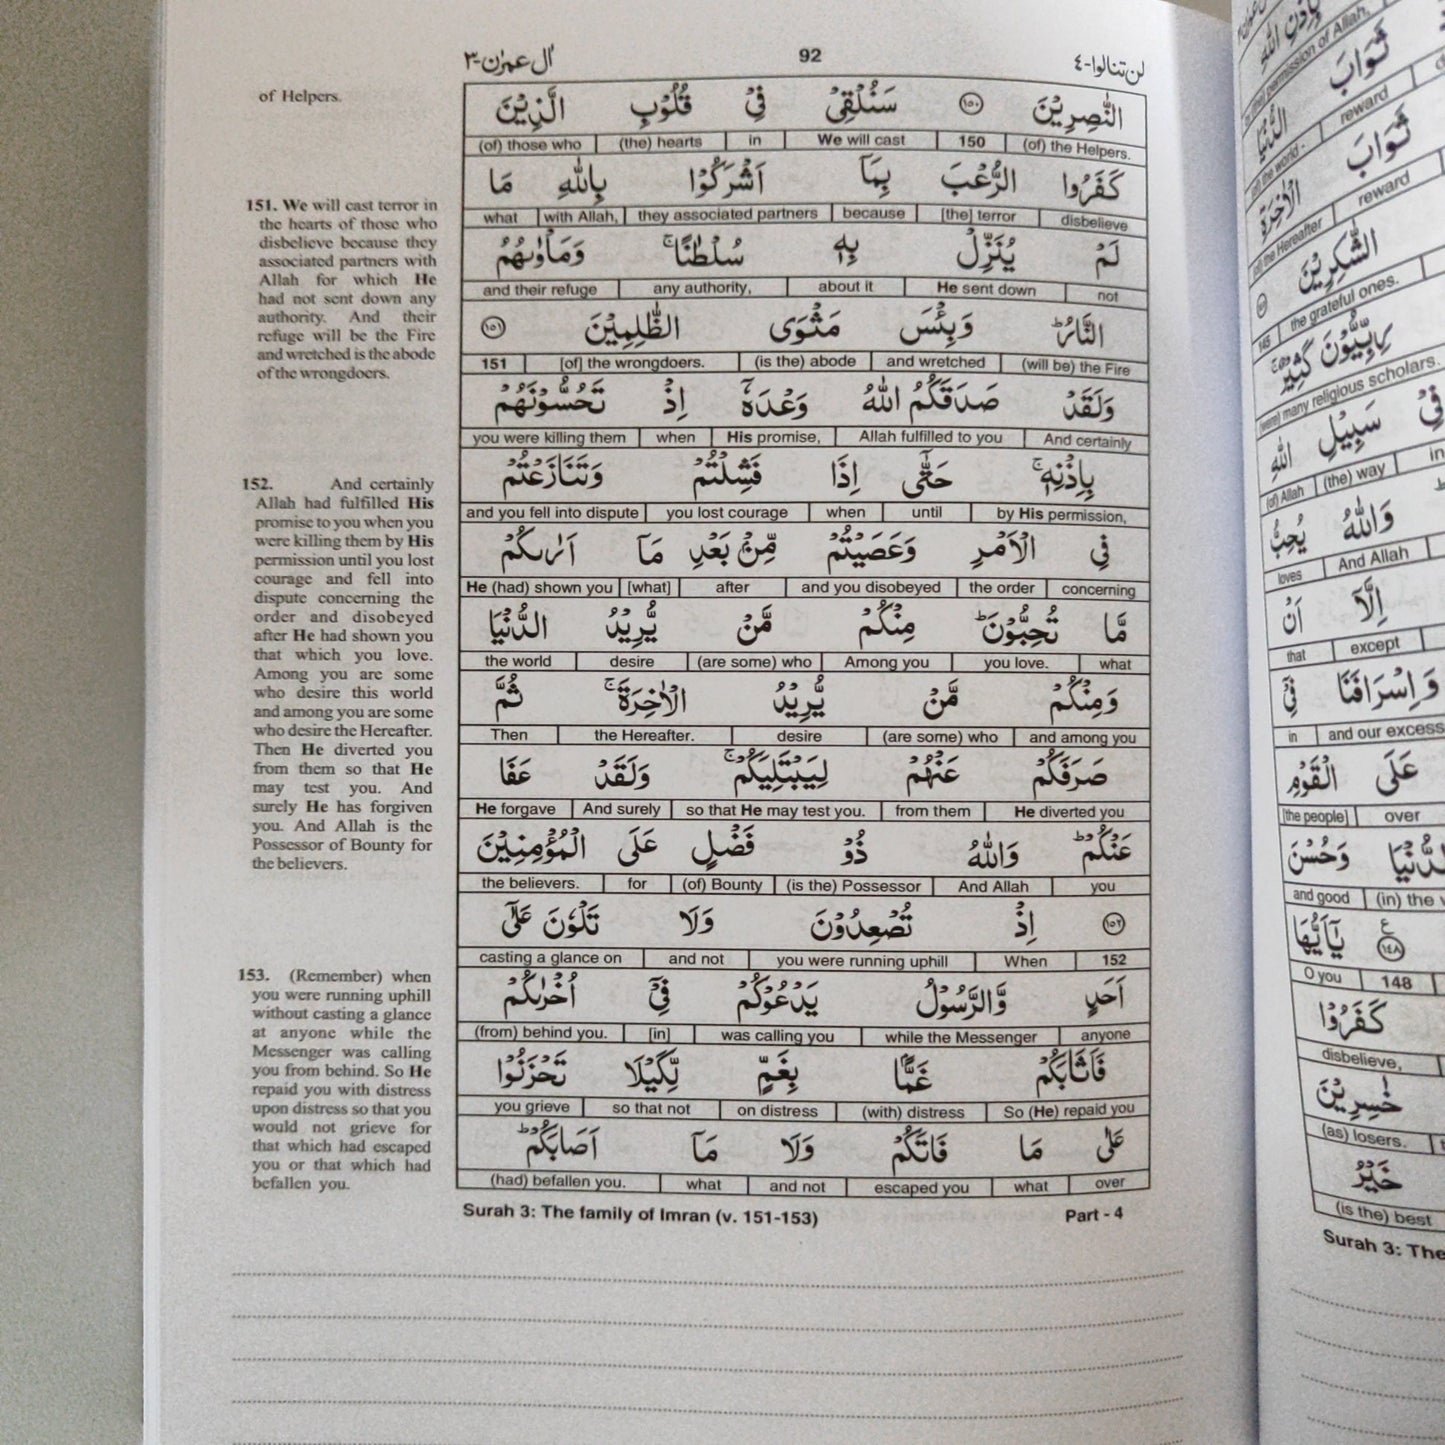 لن تنالوا-٤ 92 اٰل عمرٰن-٣
of Helpers.
151. We will cast terror in
the hearts of those who
disbelieve because they
associated partners with
Allah for which He
had not sent down any
authority. And their
refuge will be the Fire
and wretched is the abode
of the wrongdoers.
152. And certainly
Allah had fulfilled His
promise to you when you
were killing them by His
permission until you lost
courage and fell into
dispute concerning the
order and disobeyed
after He had shown you
that which you love.
Among you are some
who desire this world
and among you are some
who desire the Hereafter.
Then He diverted you
from them so that He
may test you. And
surely He has forgiven
you. And Allah is the
Possessor of Bounty for
the believers.
153. (Remember) when
you were running uphill
without casting a glance
at anyone while the
Messenger was calling
you from behind. So He
repaid you with distress
upon distress so that you
would not grieve for
that which had escaped
you or that which had
befallen you.
النّٰصِرِيْنَ ١٥٠ سَنُلْقِيْ فِيْ قُلُوْبِ الَّذِيْنَ
(of) those who (the) hearts in We will cast 150 (of) the Helpers.
كَفَرُوا الرُّعْبَ بِمَآ اَشْرَكُوْا بِاللّٰهِ مَا
what with Allah, they associated partners because [the] terror disbelieve
لَمْ يُنَزِّلْ بِهٖ سُلْطٰنًا ۚ وَمَاْوٰىهُمُ
and their refuge any authority, about it He sent down not
النَّارُ ؕ وَبِئْسَ مَثْوَى الظّٰلِمِيْنَ ١٥١
151 [of] the wrongdoers. (is the) abode and wretched (will be) the Fire
وَلَقَدْ صَدَقَكُمُ اللّٰهُ وَعْدَهٗٓ اِذْ تَحُسُّوْنَهُمْ
you were killing them when His promise, Allah fulfilled to you And certainly
بِاِذْنِهٖ ۚ حَتّٰى اِذَا فَشِلْتُمْ وَتَنَازَعْتُمْ
and you fell into dispute you lost courage when until by His permission,
فِي الْاَمْرِ وَعَصَيْتُمْ مِّنْۢ بَعْدِ مَآ اَرٰىكُمْ
He (had) shown you [what] after and you disobeyed the order concerning
مَّا تُحِبُّوْنَ ؕ مِنْكُمْ مَّنْ يُّرِيْدُ الدُّنْيَا
the world desire (are some) who Among you you love. what
وَمِنْكُمْ مَّنْ يُّرِيْدُ الْاٰخِرَةَ ۚ ثُمَّ
Then the Hereafter. desire (are some) who and among you
صَرَفَكُمْ عَنْهُمْ لِيَبْتَلِيَكُمْ ۚ وَلَقَدْ عَفَا
He forgave And surely so that He may test you. from them He diverted you
عَنْكُمْ ؕ وَاللّٰهُ ذُوْ فَضْلٍ عَلَى الْمُؤْمِنِيْنَ
the believers. for (of) Bounty (is the) Possessor And Allah you
١٥٢ اِذْ تُصْعِدُوْنَ وَلَا تَلْوٗنَ عَلٰٓى
casting a glance on and not you were running uphill When 152
اَحَدٍ وَّالرَّسُوْلُ يَدْعُوْكُمْ فِيْٓ اُخْرٰىكُمْ
(from) behind you. [in] was calling you while the Messenger anyone
فَاَثَابَكُمْ غَمًّۢا بِغَمٍّ لِّكَيْلَا تَحْزَنُوْا
you grieve so that not on distress (with) distress So (He) repaid you
عَلٰى مَا فَاتَكُمْ وَلَا مَآ اَصَابَكُمْ ؕ
(had) befallen you. what and not escaped you what over
Surah 3: The family of Imran (v. 151-153) Part - 4
ثَوَابَ
(the) permission of Allah,
الدُّنْيَا ثَوَابَ
(of) the world - reward
الْاٰخِرَةِ
(of) the Hereafter reward
الشّٰكِرِيْنَ
145 the grateful ones.
رِبِّيُّوْنَ كَثِيْرٌ ۚ
(were) many religious scholars.
فِيْ سَبِيْلِ اللّٰهِ
(of) Allah (the) way in
وَاللّٰهُ يُحِبُّ
loves And Allah
اِلَّآ اَنْ
that except
وَاِسْرَافَنَا فِيْٓ
in and our excess
عَلَى الْقَوْمِ
[the people] over
الدُّنْيَا وَحُسْنَ
and good (in) the
١٤٨ يٰٓاَيُّهَا
O you 148
كَفَرُوْا
disbelieve,
خٰسِرِيْنَ
(as) losers.
خَيْرُ
(is the) best
Surah 3: The